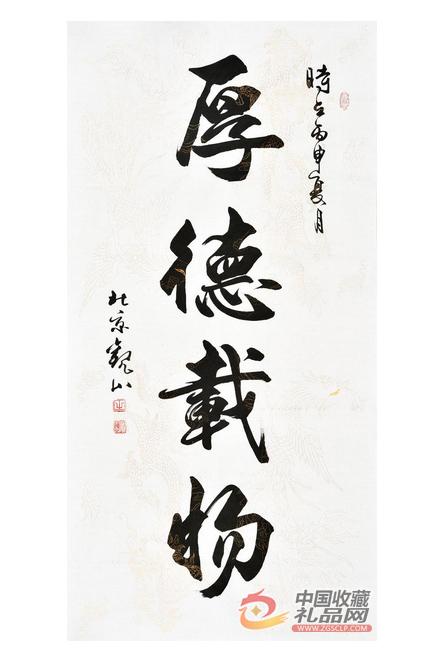 時在丙申夏月
厚德載物
北京觀山
中国收藏
礼品网
WWW.ZGSCLP.COM